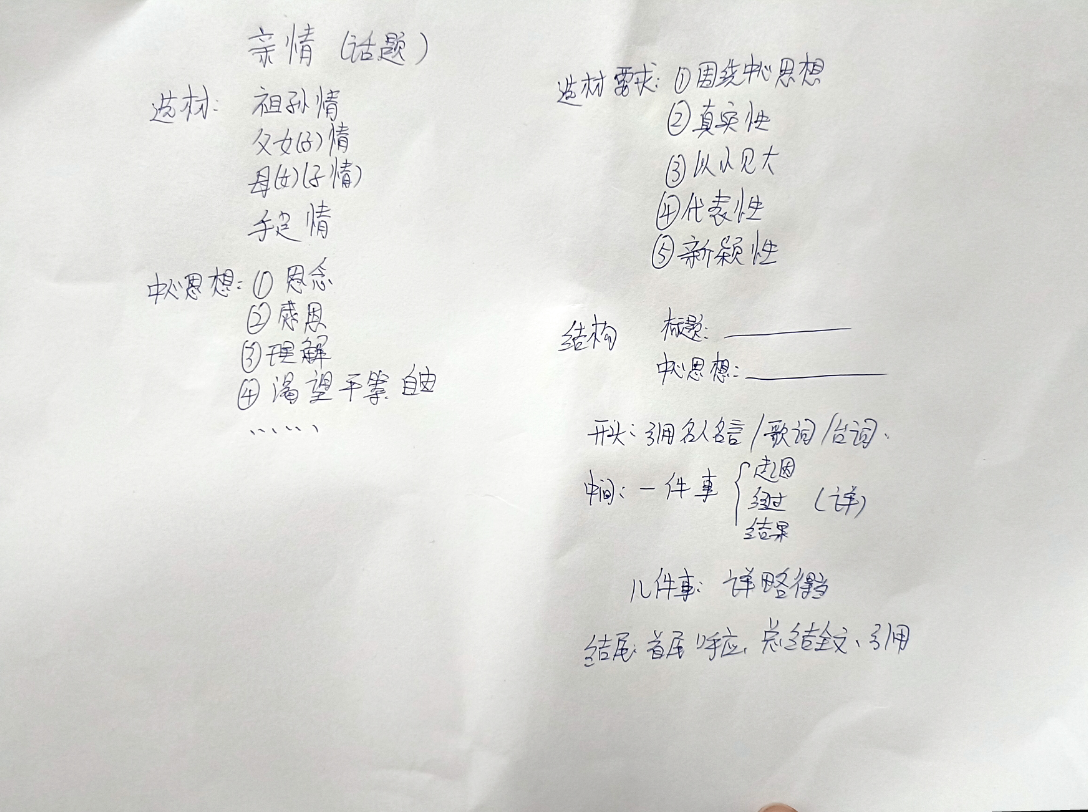 亲情（话题）
选材：祖孙情
父女(子)情
母(女)(子情)
手足情
中心思想：① 思念
② 感恩
③ 理解
④ 渴望平等 自由
……
选材要求：① 围绕中心思想
② 真实性
③ 以小见大
④ 代表性
⑤ 新颖性
结构 标题：
中心思想：
开头：引用名人名言/歌词/台词.
中间：一件事 { 起因
经过 （详）
结果
几件事：详略得当
结尾：首尾呼应、总结全文、引用